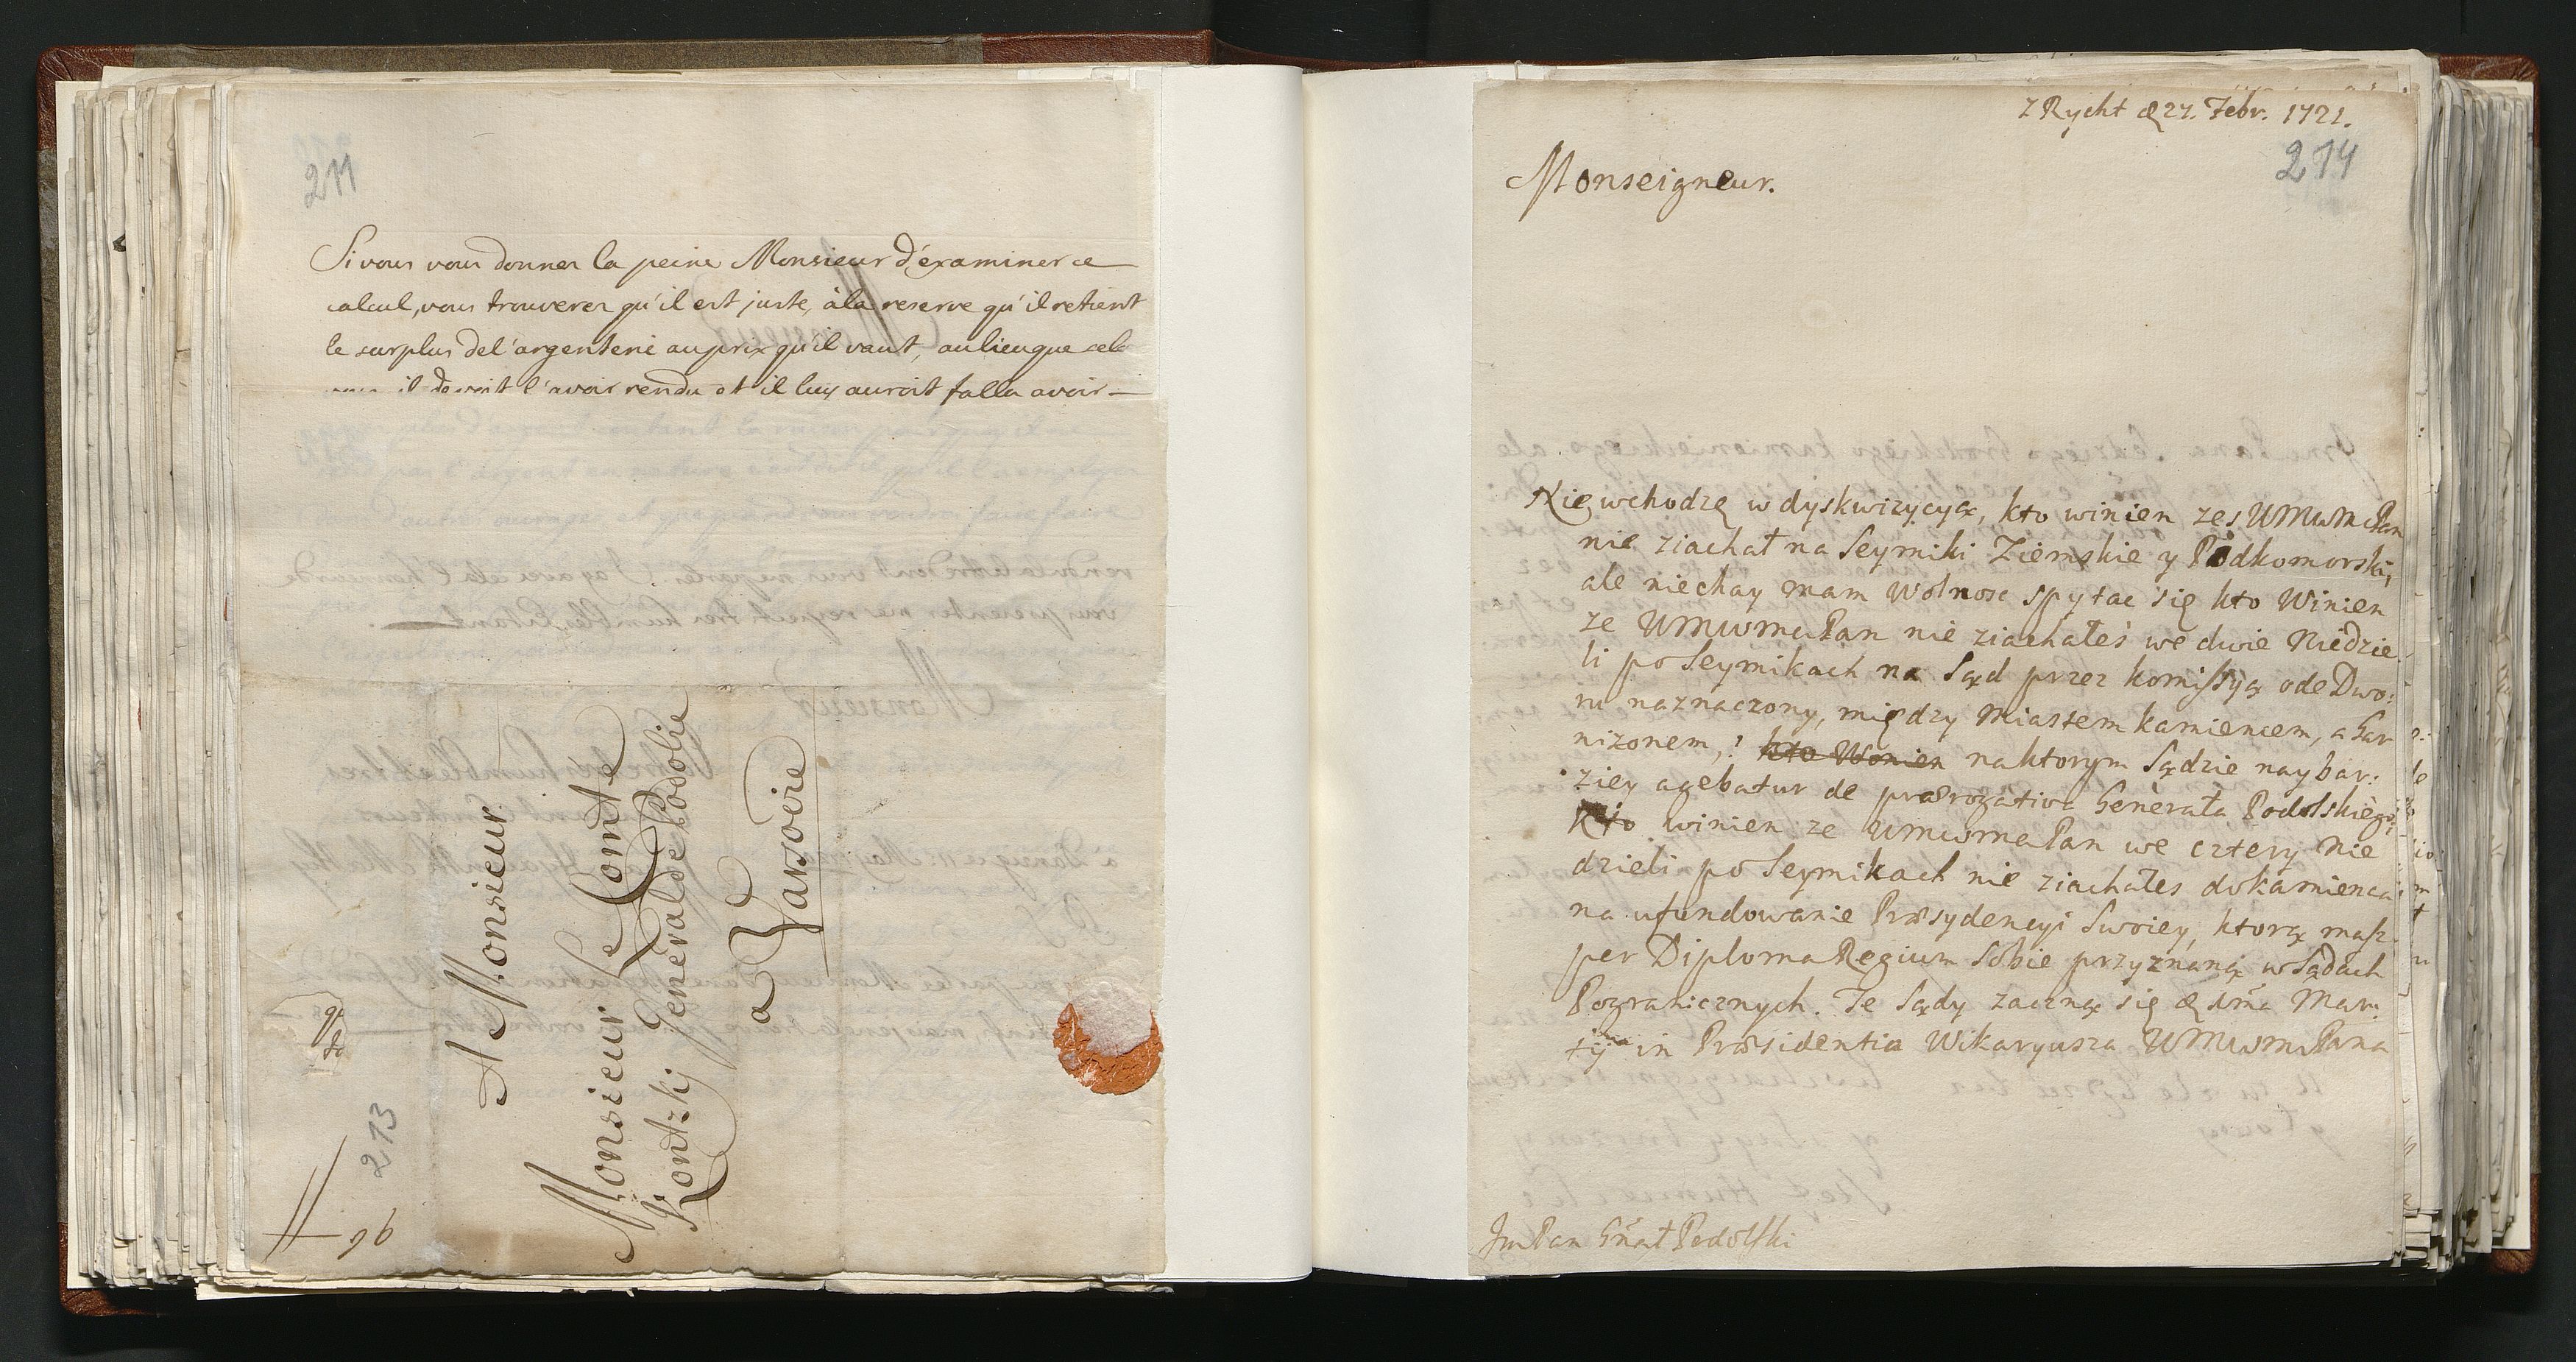 211
Si vous vous donner la peine Monsieur d'examiner ce
calcul, vous trouverez qu'il est juste, à la reserve qu'il retient
le surplus del'argenterie au prix qu'il vaut, aulieuque cela
il devoit l'avoir rendu et il luy auroit fallu avoir
A Monsieur
Monsieur le Comte
Kontzkij General de Podolie
a Varsovie
213
96
Z Rycht d 27. Febr. 1721.
214
Monseigneur.
Nie wchodzę w dyskwizycyą, kto winien zes UMWMcPan
nie ziachał na Seymiki Ziemskie y Podkomorskie,
ale niechay mam Wolnosc spytac się kto Winien
ze UMWMcPan nie ziachałeś we dwie Niedzie
li po Seymikach na Sąd przez komissyą ode Dwo:
ru naznaczony, między Miastem kamiencem, a Gar
nizonem,! kto Winien naktorym Sądzie naybar:
ziey agebatur de prærogativa Generała Podolskiego,
Kto winien ze UMWMcPan we cztery Nie
dzieli po Seymikach nie ziachałes dokamienca
na ufundowanie Præsydencyi Swoiey, ktorą masz
per Diploma Regium Sobie przyznaną w Sądach
Pogranicznych. Te Sądy zaczną się d Mar:
tij in Præsidentia Wikaryusza UMWMcPana
JmPan Gñał Podolski